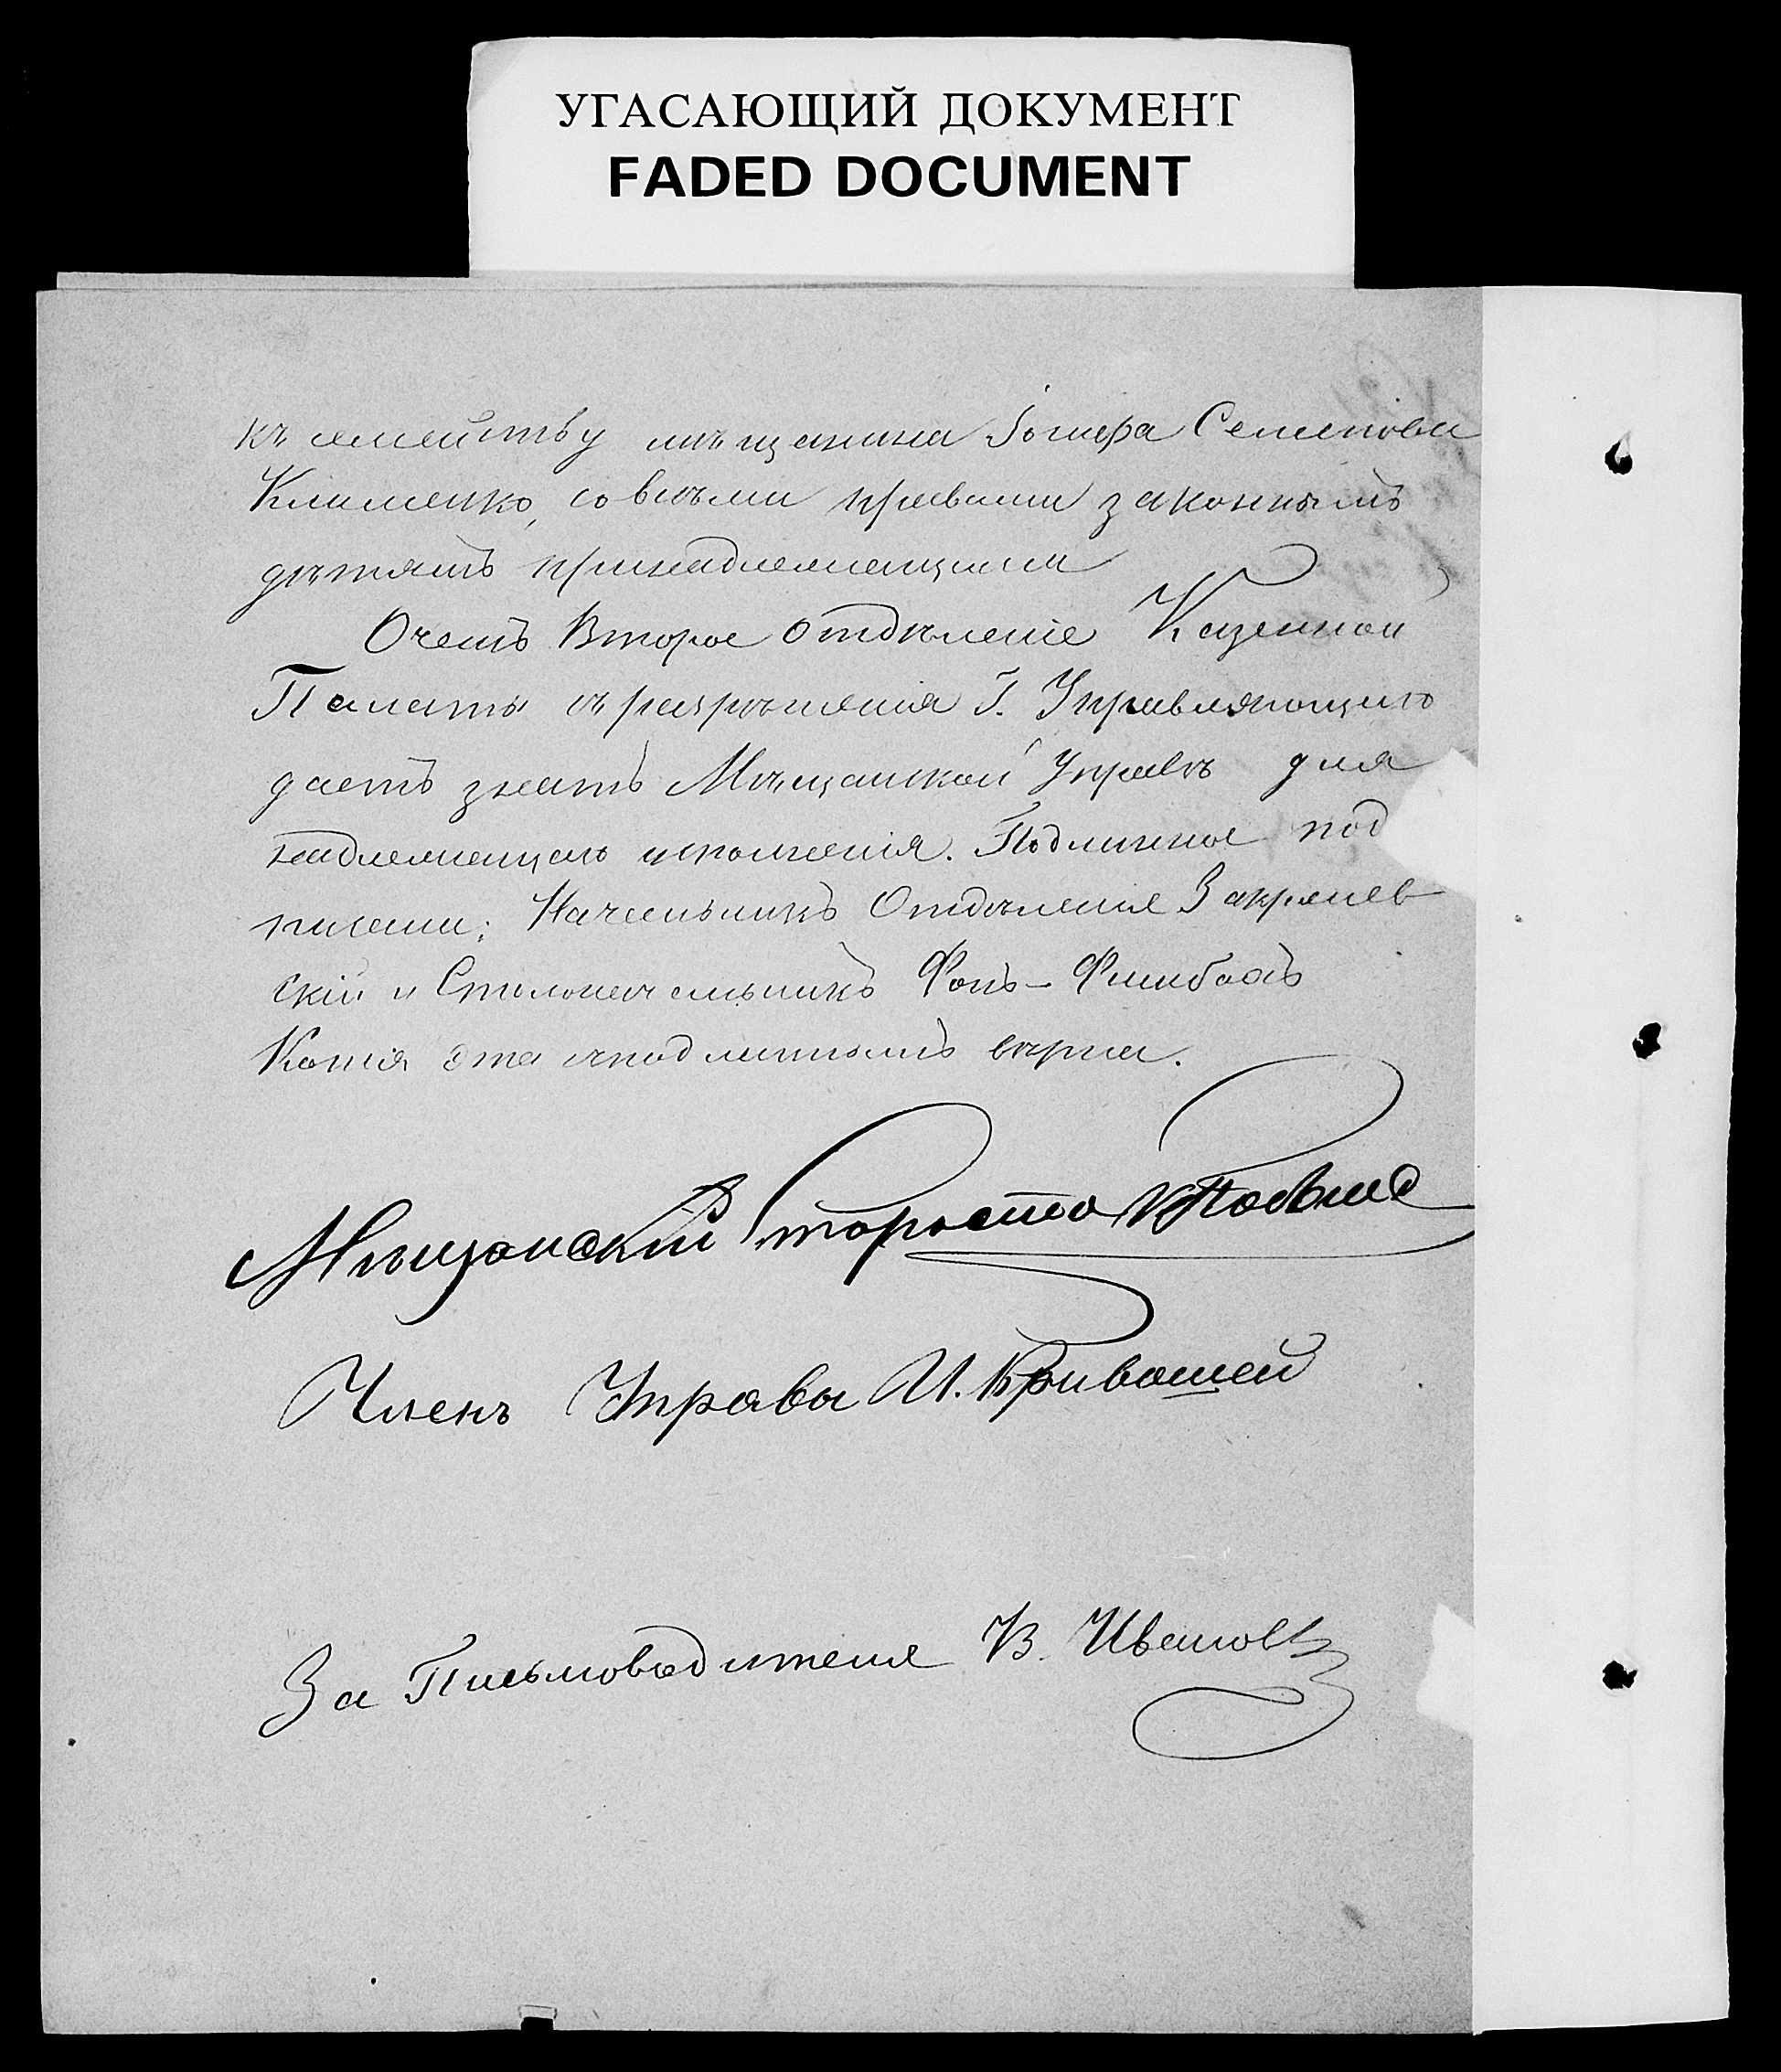 УГАСАЮЩИЙ ДОКУМЕНТ
FADED DOCUMENT
къ семейству мѣщанина Іосифа Семенова
Клименко, со всѣми правами законнымъ
дѣтямъ принадлежащими
О чемъ Второе Отдѣленіе Казенной
Палаты съ разрѣшенія Г. Управляющаго
даетъ знать Мѣщанской Управѣ для
надлежащаго исполненія. Подлинное под
писали: Начальникъ Отдѣленія Закревс
скій и Столоначальникъ Фонъ-
Копія эта съ подлиннымъ вѣрна.
Мѣщанскій Староста
Членъ Управы И. Кривошей
За Письмоводителя В. Ивановъ